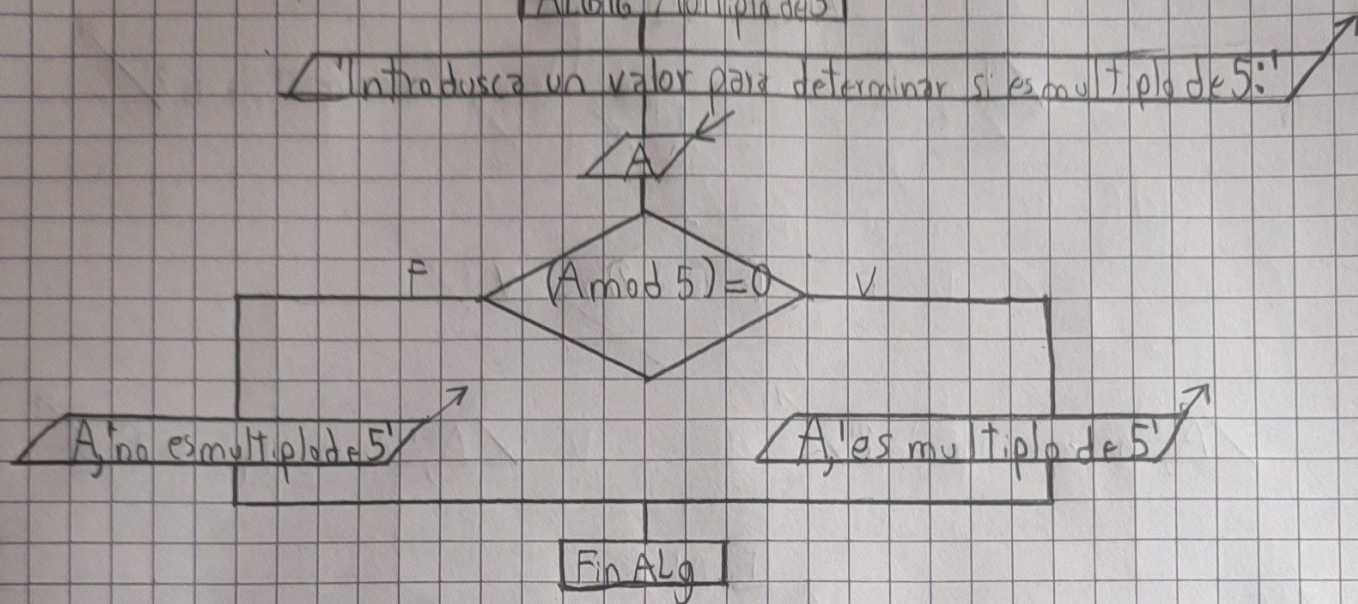 'Introdusca un valor para determinar si es multiplo de 5:'
A
(A mod 5)=0
F
V
A,'no es multiplo de 5'
A,'es multiplo de 5'
Fin ALg